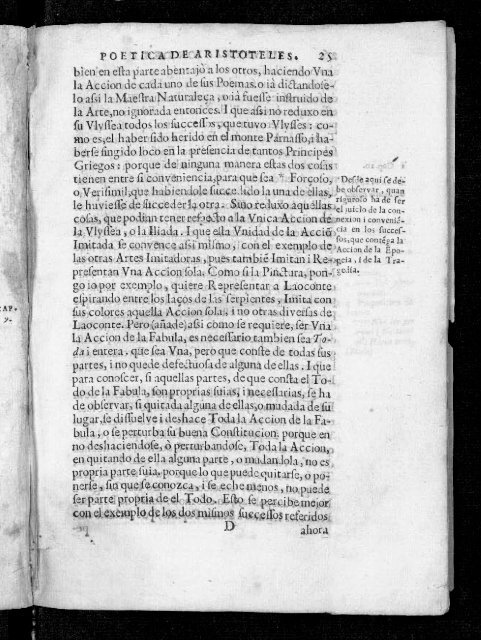 POETICA DE ARISTOTELES. 25
bien en esta parte abentajò a los otros, haciendo Vna
la Accion de cada uno de sus Poemas, o ià dictandose-
lo así la Maestra Naturaleça, o ià fuesse instruido de
la Arte, no ignorada entonces. I que así no reduxo en
su Vlyssea todos los successos, que tuvo Vlysses: co-
mo es, el haber sido herido en el monte Parnasso, i ha-
berse fingido loco en la presencia de tantos Principes
Griegos: porque de ninguna manera estas dos cosas
tienen entre si conveniencia, para que sea Forçoso,
o Verisimil, que habiendole succedido la una de ellas,
le huviesse de succeder la otra. Sino reduxo aquellas
cosas, que podian tener respecto a la Vnica Accion de
la Vlyssea, o la Iliada. I que esta Vnidad de la Acciõ
Imitada se convence asi mismo, con el exemplo de
las otras Artes Imitadoras, pues tambiẽ Imitan i Re-
presentan Vna Accion sola. Como si la Pinctura, pon-
go io por exemplo, quiere Representar a Laoconte
espirando entre los laços de las serpientes, Imita con
sus colores aquella Accion sola, i no otras diversas de
Laoconte. Pero (añade) así como se requiere, ser Vna
la Accion de la Fabula, es necessario tambien sea To-
da i entera, que sea Vna, pero que conste de todas sus
partes, i no quede defectuosa de alguna de ellas. I que
para conoscer, si aquellas partes, de que consta el To-
do de la Fabula, son proprias suias, i necessarias, se ha
de observar, si quitada alguna de ellas, o mudada de su
lugar, se dissuelve i deshace Toda la Accion de la Fa-
bula, o se perturba su buena Constitucion: porque en
no deshaciendose, ò perturbandose, Toda la Accion,
en quitando de ella alguna parte, o mudandola, no es
propria parte suia, porque lo que puede quitarse, o po-
nerse, sin que se conozca, i se eche menos, no puede
ser parte propria de el Todo. Esto se percibe mejor
con el exemplo de los dos mismos successos referidos
D
ahora
Desde aqui se de-
be observar, quan
riguroso ha de ser
el juicio de la con-
nexion i conveniẽ-
cia en los succes-
sos, que contẽga la
Accion de la Epo-
peia, i de la Tra-
gedia.
CAP.